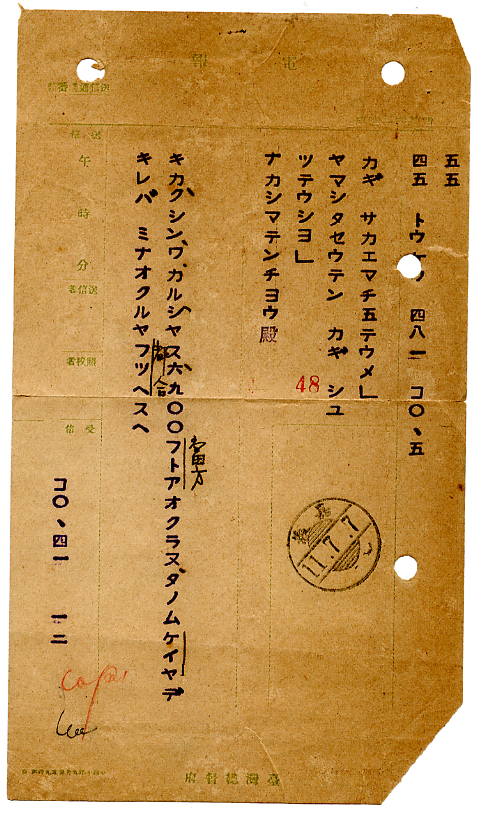 電報
五五
四五 トウケフ 四八一 コ〇、五
カギ サカエマチ五テウメ」
ヤマシタセウテン カギ シュ
ツテウシヨ」
ナカシマテンチヨウ殿
48
キカクシン、ワカルシヤス六、九〇〇フトアオクラヌ、ダノムケイヤデ
當方
キレバ ミナオクルヤフツヘスヘ
都合
コ〇、四一 一二
11.7.7
送信
午 時 分
送信者
照校者
受信
臺灣總督府